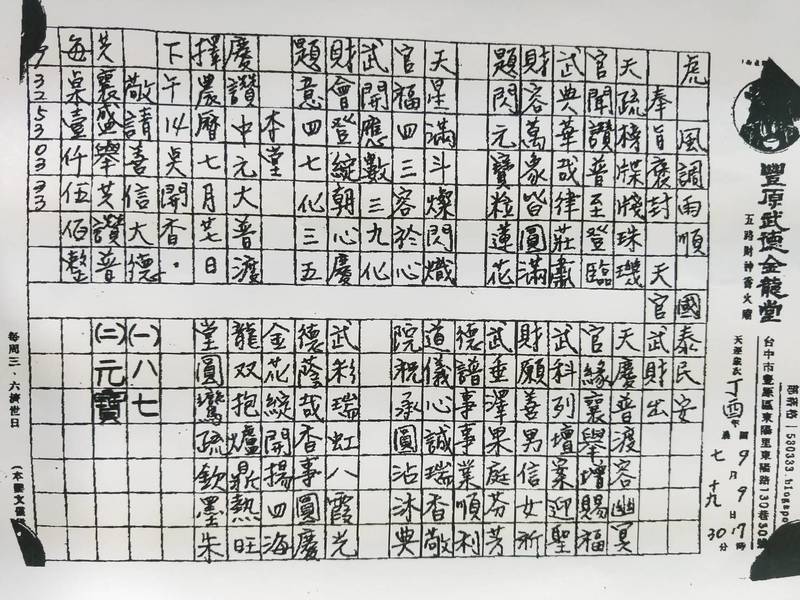 豐原武德金龍堂
五路財神香火廟
台中市豐原區東陽里東陽路130巷30號
部落格 | 530333.blogspo
天運歲次丁酉年
國9月9日17時
農七十九30分
虎 風調雨順 國泰民安
奉旨褒封 天官武財出
天疏榜牒牋珠璣
官聞讚普至登臨
武典華哉律莊肅
財容萬象皆圓滿
題閃元寶粒蓮花
天星滿斗燦閃熾
官福四三容於心
武開應數三九化
財會登綻朝心慶
題意四七化三五
本堂
慶讚中元大普渡
擇農曆七月廿七日
下午14点開香。
敬請善信大德
共襄盛舉共讚普
每桌壹仟伍佰整
9 32 53 03 33
天慶普渡容幽冥
官緣襄舉增賜福
武科列壇案迎聖
財願善男信女祈
武垂澤果庭芬芳
德譜事事業順利
道儀心誠瑞香敬
院祝承圓沾沐典
武彩瑞虹八霞光
德蔭哉香事圓慶
金花綻開揚四海
龍双抱爐鼎熱旺
堂圓鸞疏欽墨朱
(一)八七
(二)元寶
每周三、六濟世日